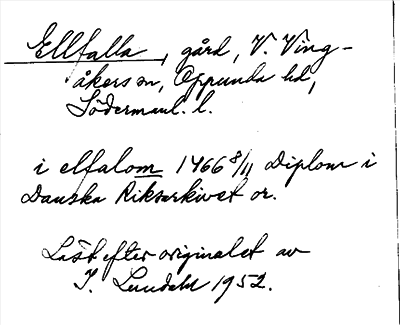 Ellfalla, gård, V. Ving-
åkers sn, Oppunda hd,
Södermanl. l.
i elfalom 1466 8/11 Diplom i
Danska Riksarkivet or.
Läst efter originalet av
I. Lundahl 1952.